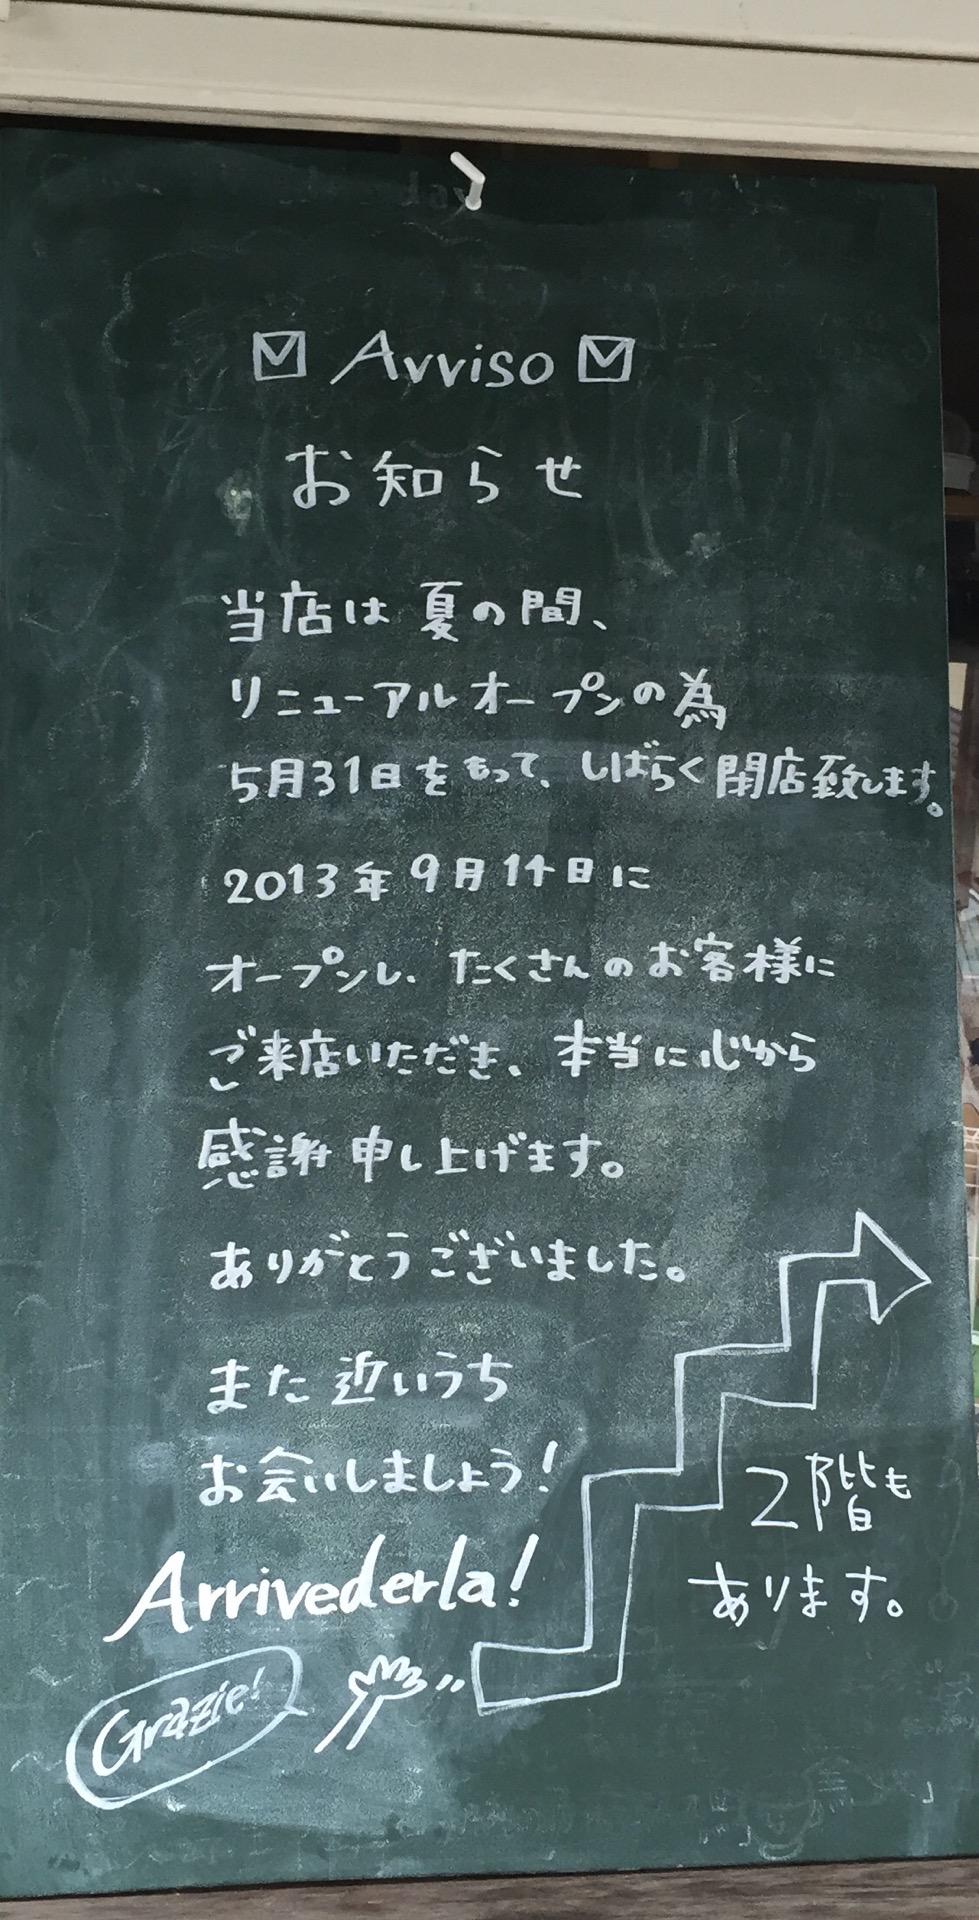 Avviso
お知らせ
当店は夏の間、
リニューアルオープンの為
5月31日をもって、しばらく閉店致します。
2013年9月14日に
オープンし、たくさんのお客様に
ご来店いただき、本当に心から
感謝申し上げます。
ありがとうございました。
また近いうち
お会いしましょう!
Arrivederla!
Grazie!
2階も
あります。